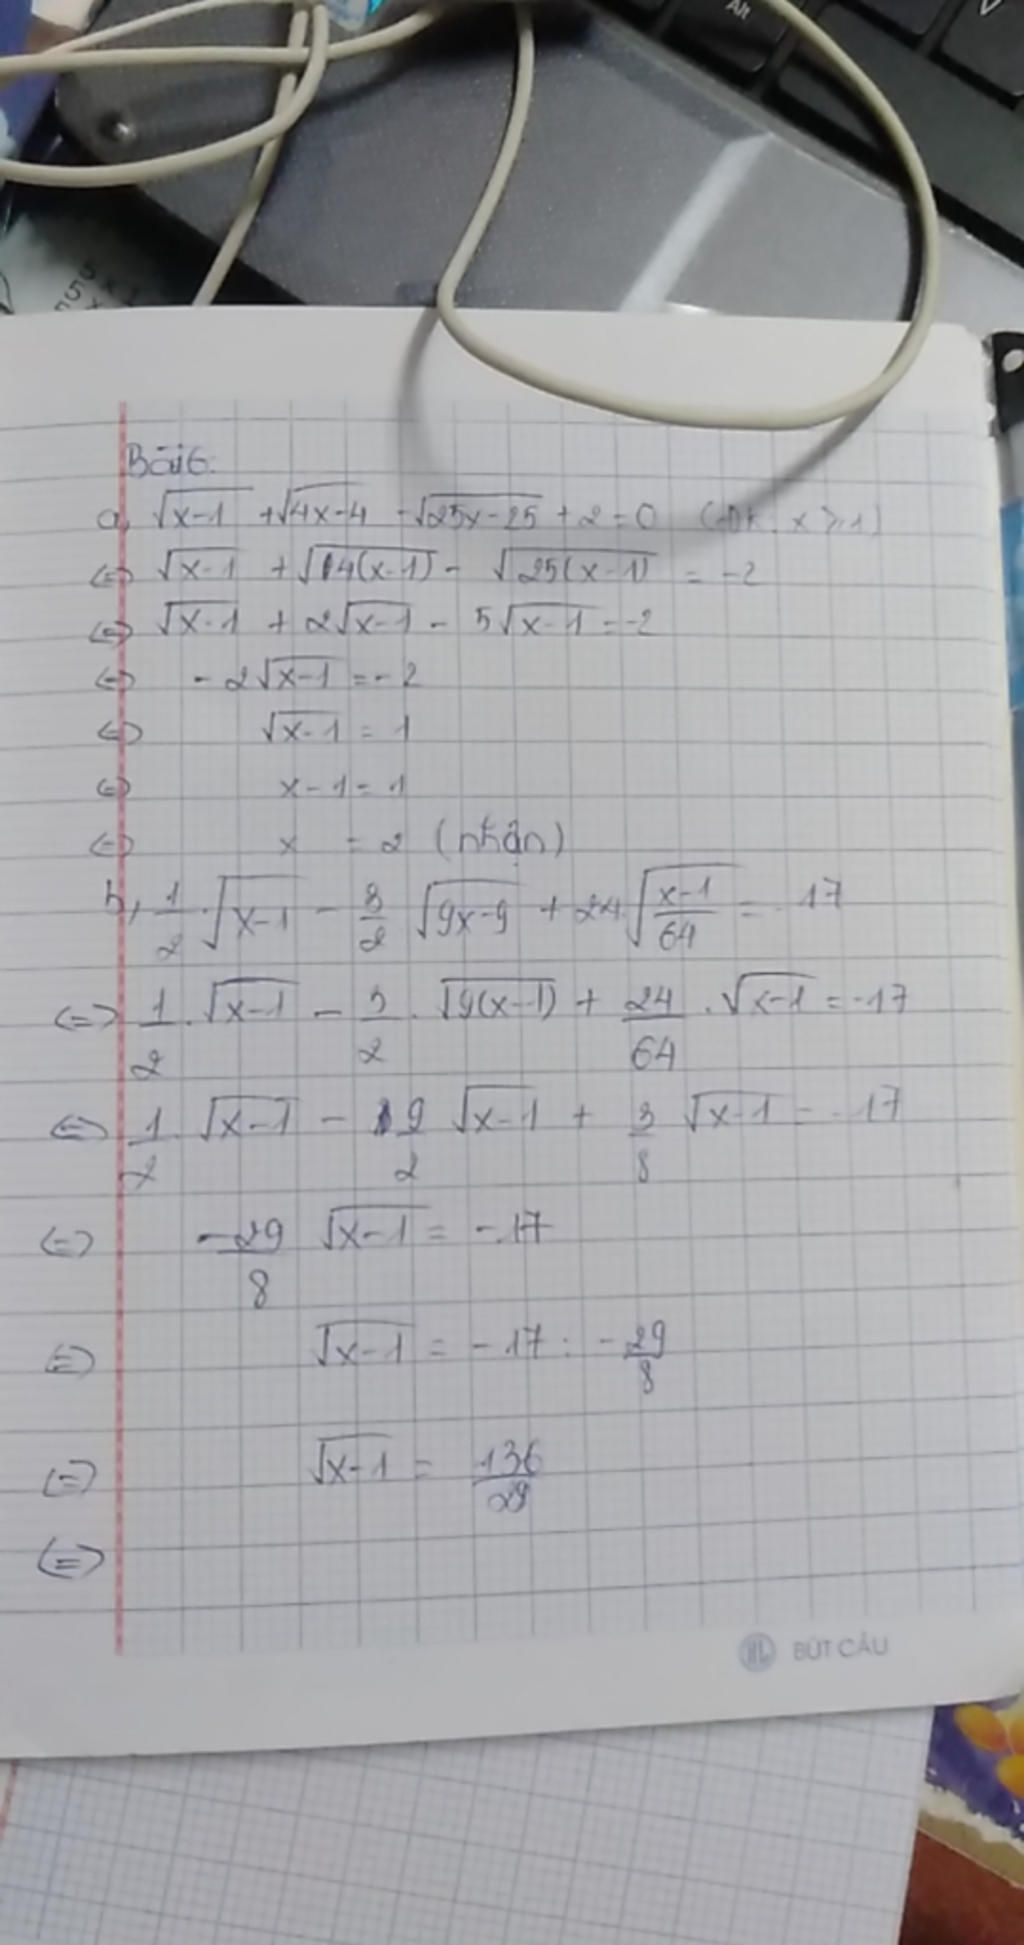 Alt
V
5 x 1
5 x
Bài 6:
a, √(x-1) + √(4x-4) - √(25x-25) + 2 = 0 (ĐK: x ≥ 1)
<=> √(x-1) + √(4(x-1)) - √(25(x-1)) = -2
<=> √(x-1) + 2√(x-1) - 5√(x-1) = -2
<=> -2√(x-1) = -2
<=> √(x-1) = 1
<=> x-1 = 1
<=> x = 2 (nhận)
b, 1/2 . √(x-1) - 3/2 √(9x-9) + 24.√((x-1)/64) = -17
<=> 1/2 . √(x-1) - 3/2 . √(9(x-1)) + 24/64 . √(x-1) = -17
<=> 1/2 . √(x-1) - 9/2 √(x-1) + 3/8 √(x-1) = -17
<=> -29/8 √(x-1) = -17
<=> √(x-1) = -17 : -29/8
<=> √(x-1) = 136/29
<=>
BÚT CÂU